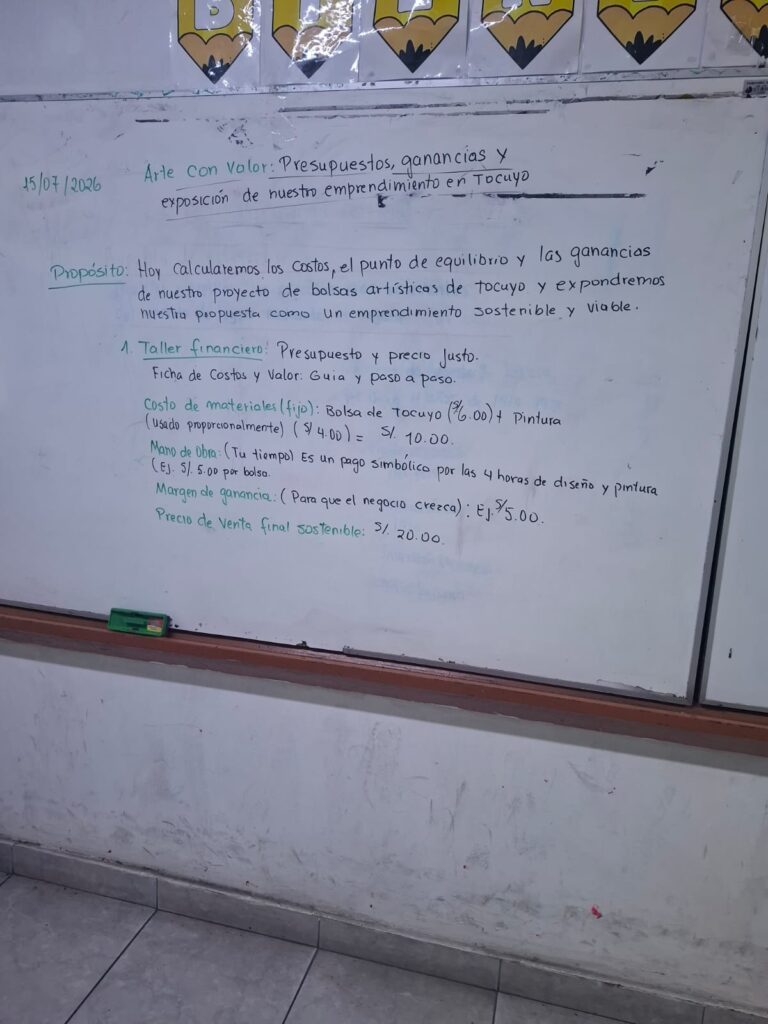 B I E N E
15/07/2026
Arte con Valor: Presupuestos, ganancias y
exposición de nuestro emprendimiento en Tocuyo
Propósito: Hoy calcularemos los costos, el punto de equilibrio y las ganancias
de nuestro proyecto de bolsas artísticas de tocuyo y expondremos
nuestra propuesta como un emprendimiento sostenible y viable.
1. Taller financiero: Presupuesto y precio justo.
Ficha de Costos y Valor: Guia y paso a paso.
Costo de materiales (fijo): Bolsa de Tocuyo (S/6.00) + Pintura
(usado proporcionalmente) (S/ 4.00) = S/. 10.00.
Mano de Obra: (Tu tiempo) Es un pago simbólico por las 4 horas de diseño y pintura
(Ej. S/. 5.00 por bolsa.
Margen de ganancia: (Para que el negocio crezca): Ej. S/5.00.
Precio de venta final sostenible: S/. 20.00.